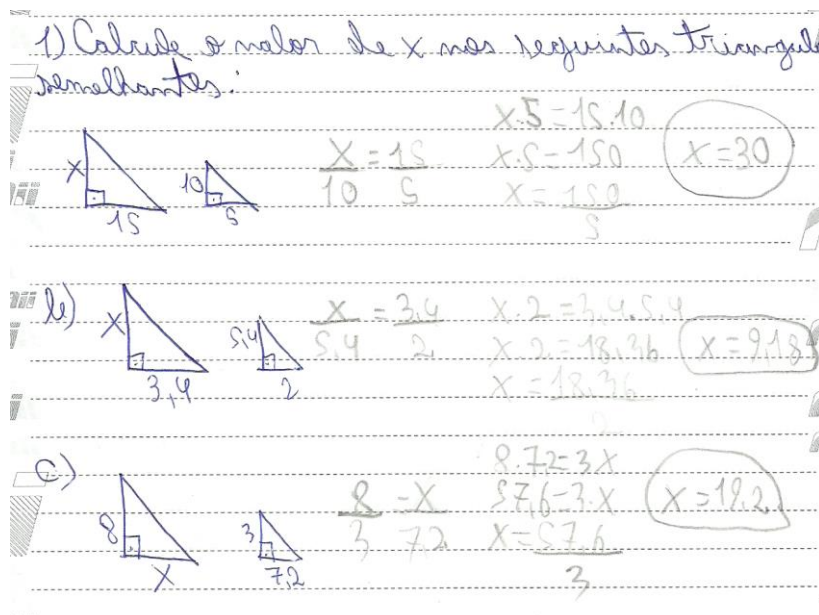 1) Calcule o valor de x nos seguintes triangul
semelhantes:
x
15
10
5
x/10 = 15/5
x.5=15.10
x.5=150
x=150/5
x=30
b)
x
3,4
5,4
2
x/5,4 = 3,4/2
x.2=3,4.5,4
x.2=18,36
x=18,36/2
x=9,18
c)
8
x
3
7,2
8/3 = x/7,2
8.7,2=3x
57,6=3.x
x=57,6/3
x=19,2